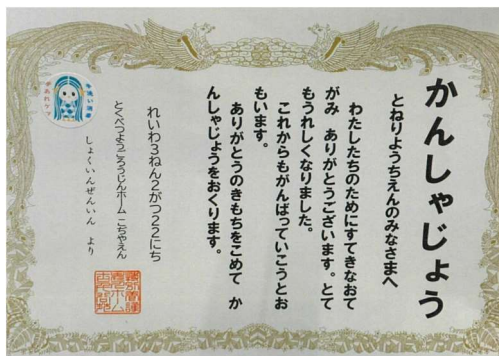 かんしゃじょう
とねりようちえんのみなさまへ
わたしたちのためにすてきなおて
がみ ありがとうございます。とて
もうれしくなりました。
これからもがんばっていこうとお
もいます。
ありがとうのきもちをこめて か
んしゃじょうをおくります。
れいわ3ねん2がつ22にち
とくべつようごろうじんホーム こぢゃえん
しょくいんぜんいん より